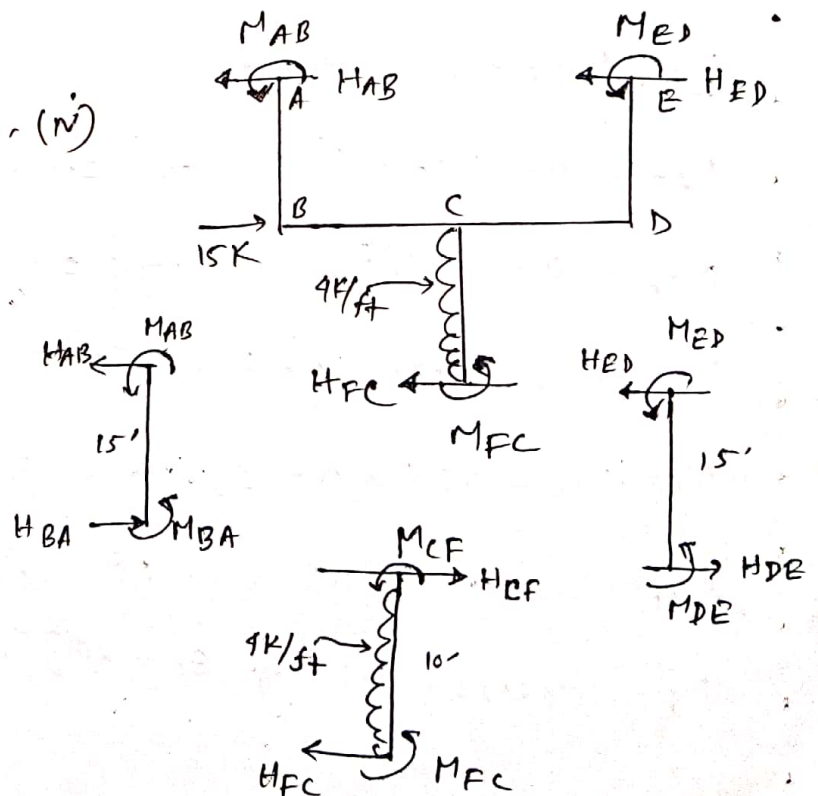 M_AB M_ED
A H_AB E H_ED
(N)
B C D
15K
4K/ft
H_FC
M_FC
M_AB
H_AB
15'
H_BA M_BA
M_ED
H_ED
15'
H_DE
M_DE
M_CF
H_CF
4K/ft 10'
H_FC M_FC